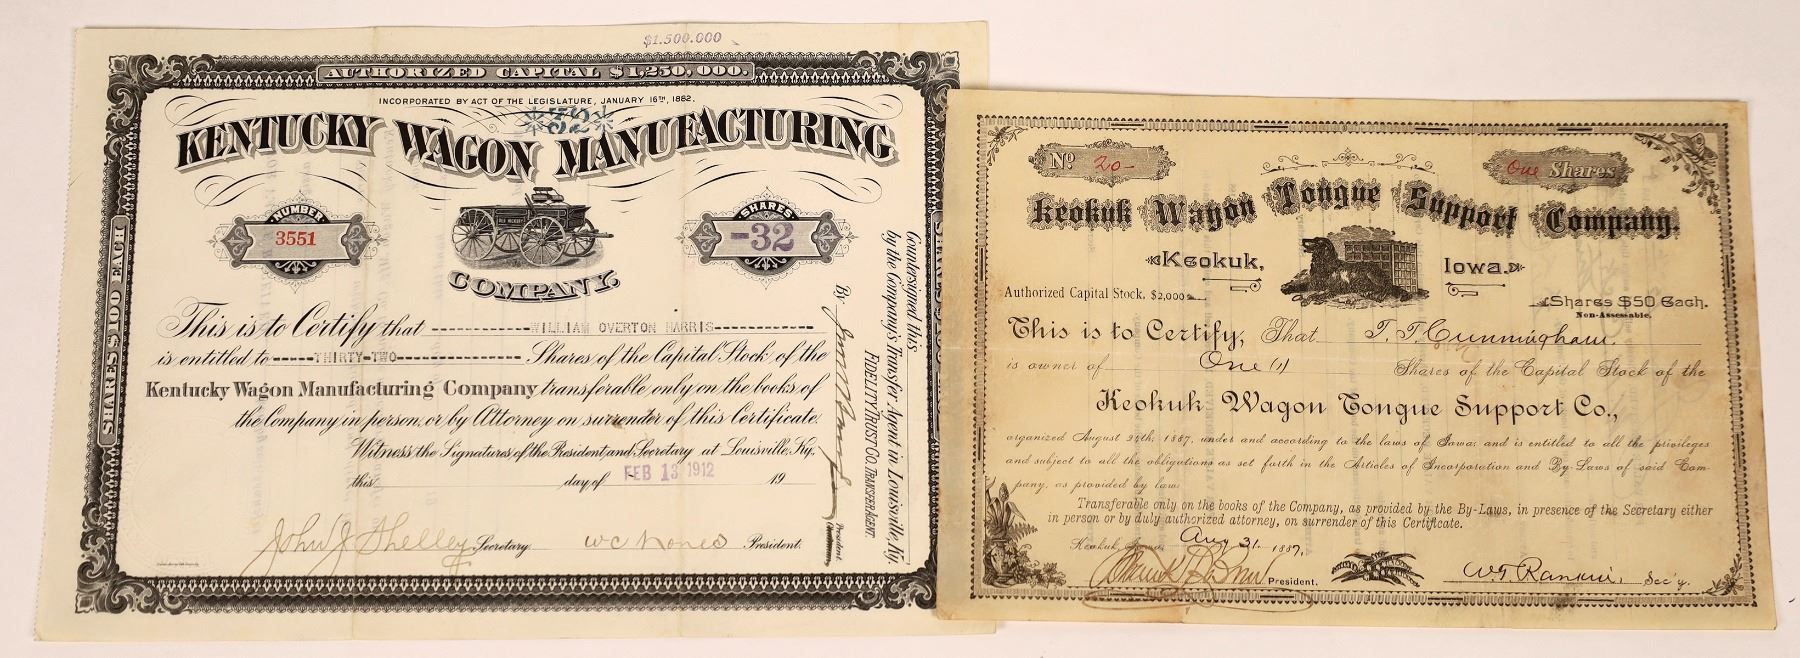 $1.500.000
AUTHORIZED CAPITAL $1,250,000.
INCORPORATED BY ACT OF THE LEGISLATURE, JANUARY 16TH, 1882.
32
KENTUCKY WAGON MANUFACTURING
COMPANY.
NUMBER
3551
SHARES
-32-
SHARES $100 EACH
This is to Certify that WILLIAM OVERTON HARRIS
is entitled to THIRTY-TWO Shares of the Capital Stock of the
Kentucky Wagon Manufacturing Company transferable only on the books of
the Company in person, or by Attorney on surrender of this Certificate.
Witness the Signatures of the President and Secretary at Louisville, Ky.
this day of FEB 13 1912 19
John J Shelley Secretary. President.
Countersigned this
by the Company's Transfer Agent in Louisville, Ky.
FIDELITY TRUST CO. TRANSFER AGENT.
By
President
No 20-
One Shares
Keokuk Wagon Tongue Support Company.
Keokuk, Iowa.
Authorized Capital Stock, $2,000
Shares $50 Each.
Non-Assessable.
This is to Certify, That T. T. Cunningham.
is owner of One (1) Shares of the Capital Stock of the
Keokuk Wagon Tongue Support Co.,
organized August 27th, 1887, under and according to the laws of Iowa; and is entitled to all the privileges
and subject to all the obligations as set forth in the Articles of Incorporation and By-Laws of said Com-
pany, as provided by law.
Transferable only on the books of the Company, as provided by the By-Laws, in presence of the Secretary either
in person or by duly authorized attorney, on surrender of this Certificate.
Keokuk, Iowa, Aug 31 1887.
President.
W. T. Rankin, Sec'y.